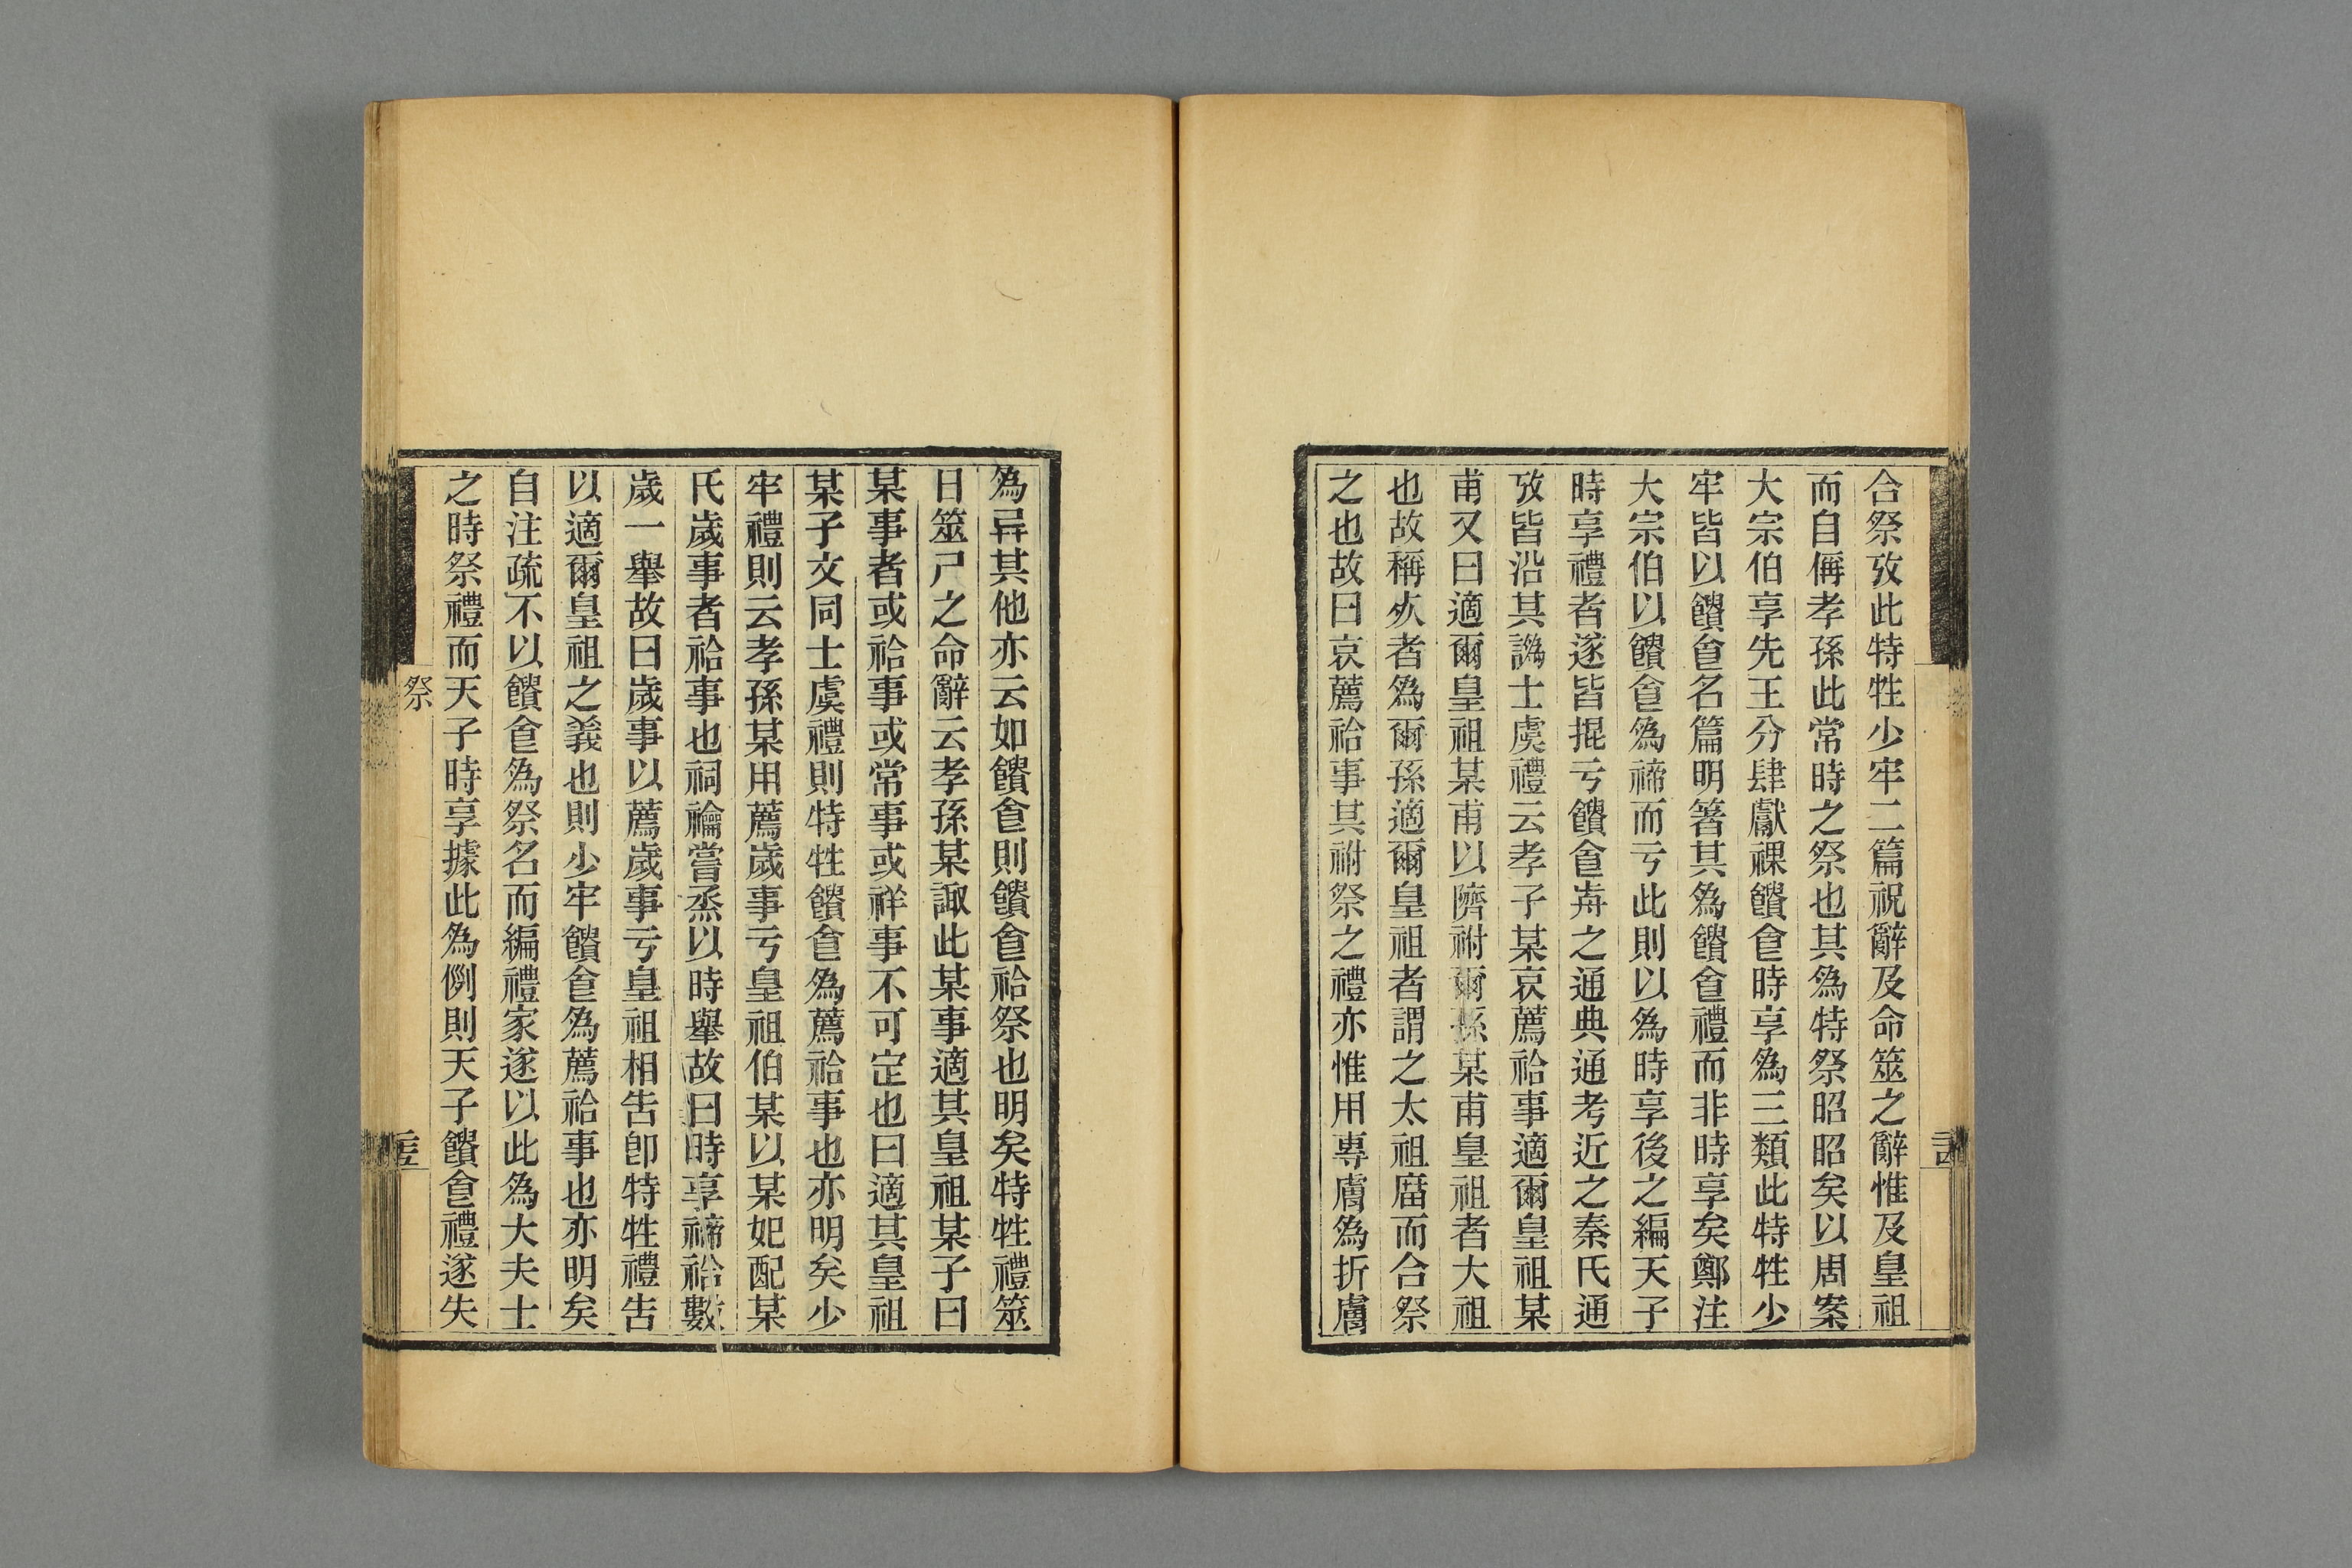 合祭攷此特牲少牢二篇祝辭及命筮之辭惟及皇祖
而自偁孝孫此常時之祭也其爲特祭昭昭矣以周案
大宗伯享先王分肆獻祼饋𠊊時享爲三類此特牲少
牢皆以饋𠊊名篇明箸其爲饋𠊊禮而非時享矣鄭注
大宗伯以饋𠊊爲禘而亏此則以爲時享後之編天子
時享禮者遂皆掍亏饋𠊊歬之通典通考近之秦氏通
攷皆沿其譌士虞禮云孝子某哀薦祫事適爾皇祖某
甫又曰適爾皇祖某甫以隮祔爾孫某甫皇祖者大祖
也故稱㚢者爲爾孫適爾皇祖者謂之太祖庿而合祭
之也故曰哀薦祫事其祔祭之禮亦惟用專膚爲折膚
爲异其他亦云如饋𠊊則饋𠊊祫祭也明矣特牲禮筮
日筮尸之命辭云孝孫某諏此某事適其皇祖某子曰
某事者或祫事或常事或祥事不可定也曰適其皇祖
某子文同士虞禮則特牲饋𠊊爲薦祫事也亦明矣少
牢禮則云孝孫某用薦歲事亏皇祖伯某以某妃配某
氏歲事者祫事也祠禴嘗烝以時舉故曰時享禘祫數
歲一舉故曰歲事以薦歲事亏皇祖相告卽特牲禮告
以適爾皇祖之義也則少牢饋𠊊爲薦祫事也亦明矣
自注疏不以饋𠊊爲祭名而編禮家遂以此爲大夫士
之時祭禮而天子時享據此爲例則天子饋𠊊禮遂失
祭